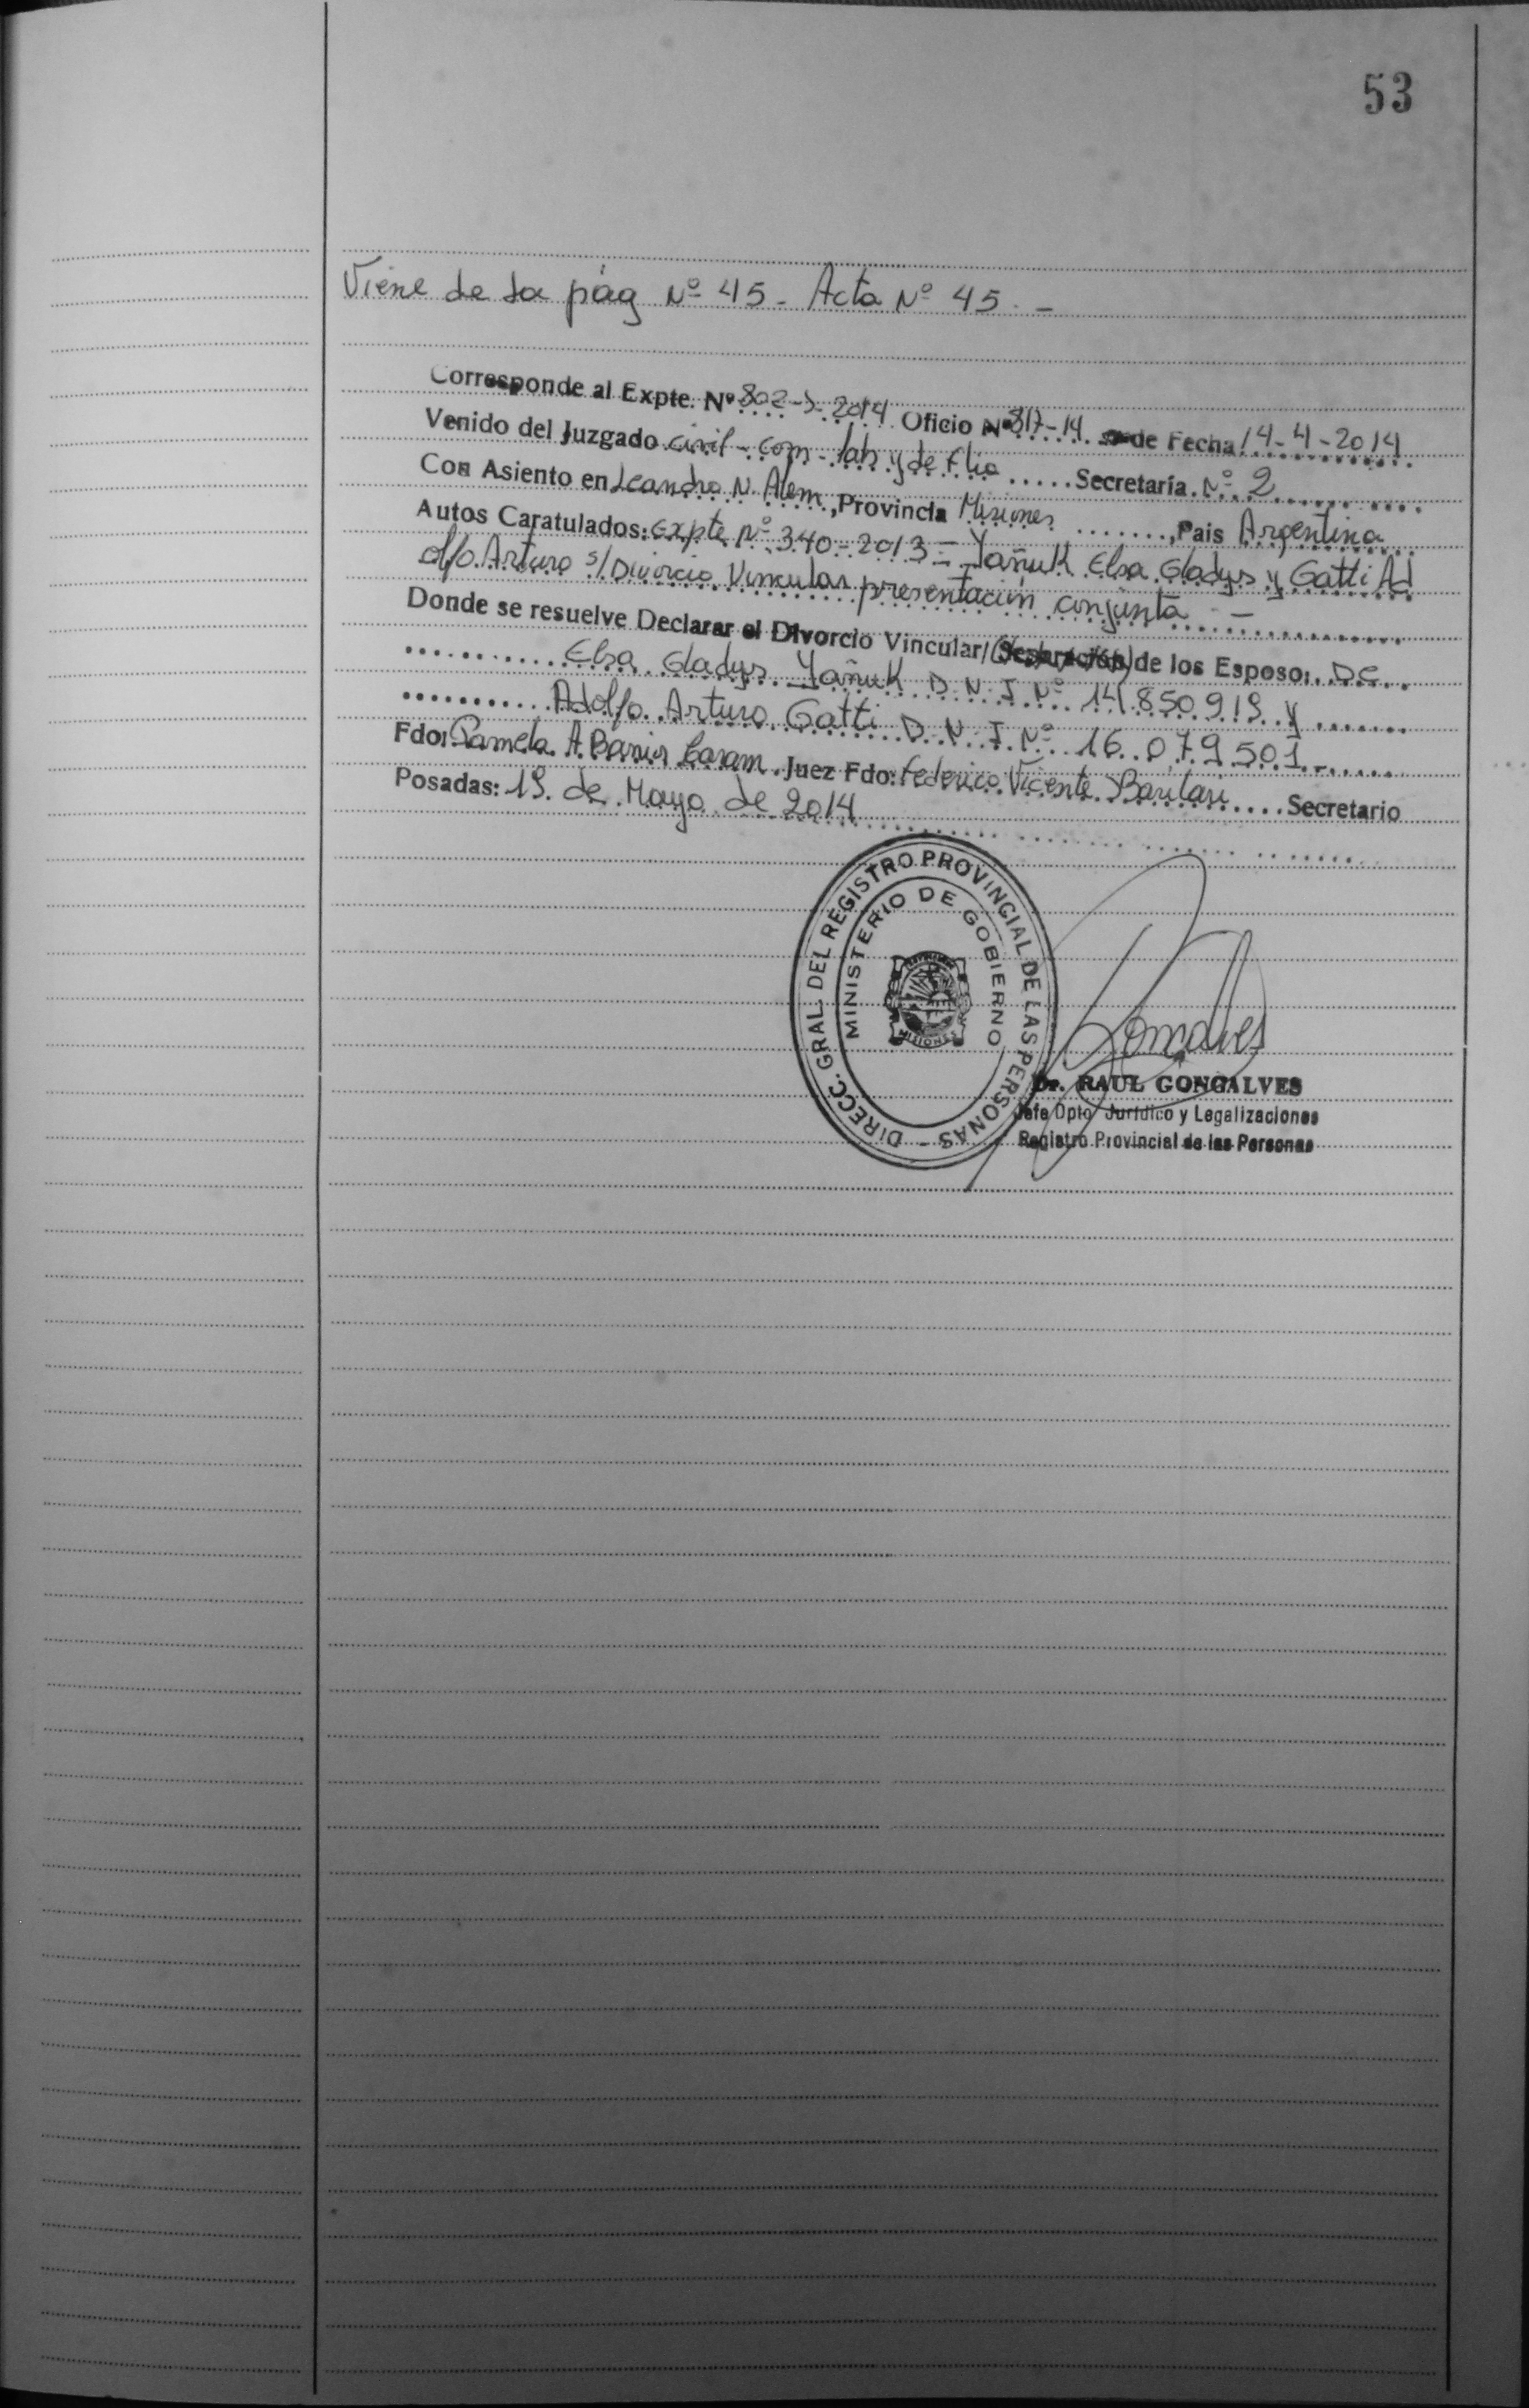 53
Viene de la pág Nº 45 - Acta Nº 45. -
Corresponde al Expte. Nº 802-S-2014 Oficio Nº 817-14 de Fecha 14-4-2014
Venido del Juzgado civil - com - lab y de flia ..... Secretaría. Nº 2
Con Asiento en Leandro N. Alem, Provincia Misiones ......., Pais Argentina
Autos Caratulados: Expte Nº 340-2013 - Yañuk Elsa Gladys y Gatti Ad
olfo Arturo s/Divorcio Vincular presentación conjunta. -
Donde se resuelve Declarar el Divorcio Vincular/ de los Esposo: DE
Elsa Gladys Yañuk D.N.I Nº 14.850.919 y
Adolfo Arturo Gatti D.N.I Nº 16.079.501-
Fdo: Pamela A. Caram. Juez Fdo: Federico Vicente Barilari .... Secretario
Posadas: 19. de Mayo de 2014
DIRECC. GRAL. DEL REGISTRO PROVINCIAL DE LAS PERSONAS -
MINISTERIO DE GOBIERNO
MISIONES
Goncalves
Dr. RAUL GONCALVES
Jefe Dpto Jurídico y Legalizaciones
Registro Provincial de las Personas